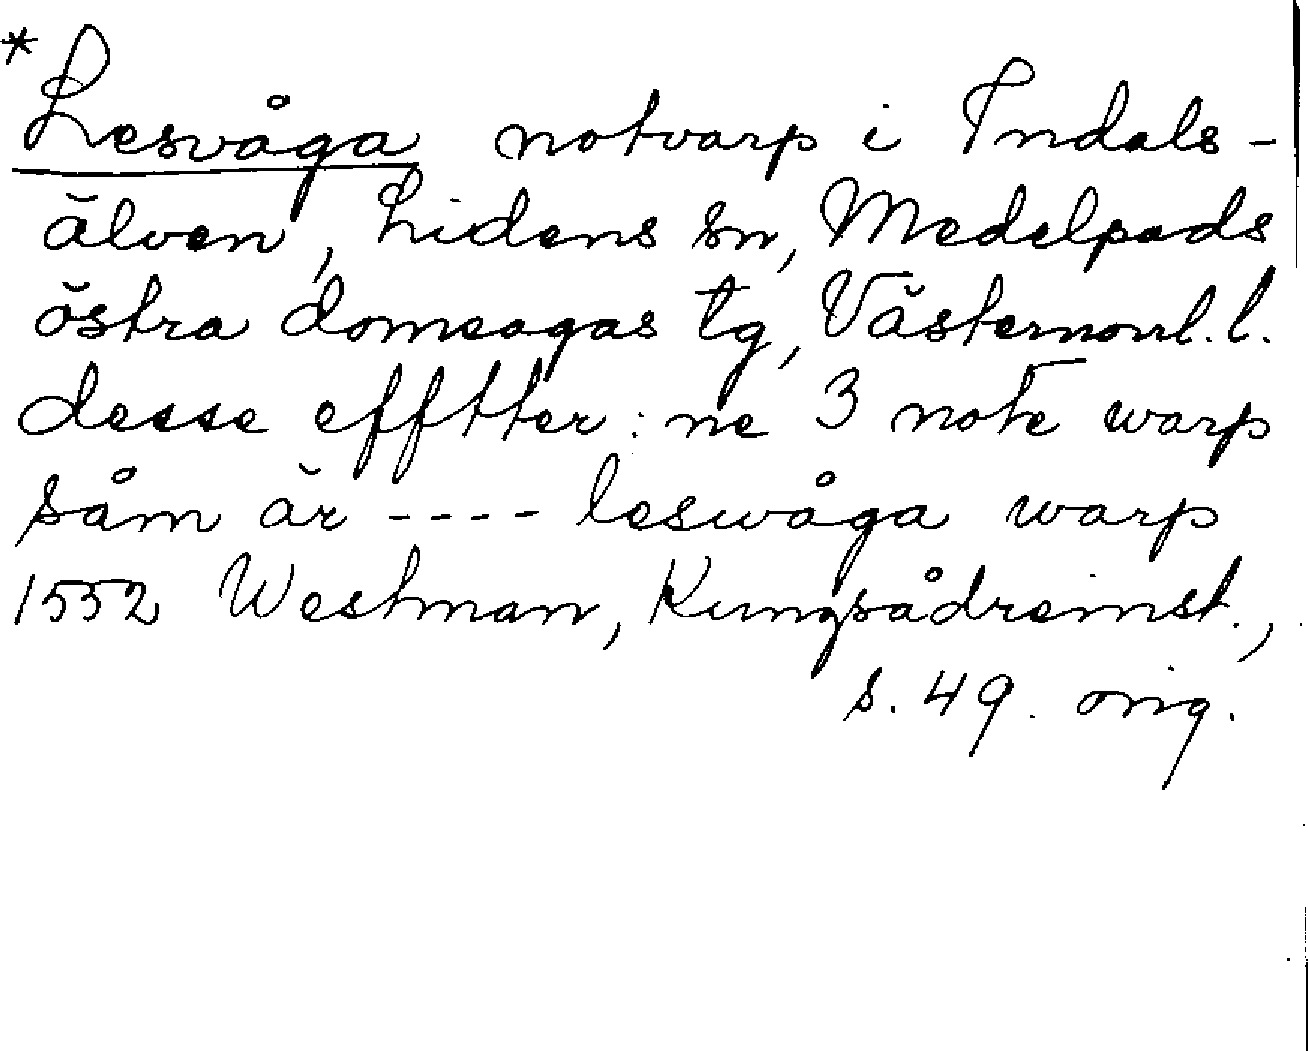 * Lesvåga notvarp i Indals-
älven, Lidens sn, Medelpads
östra domsagas tg, Västernorrl. l.
desse efftter: ne 3 note warp
såm är ---- leswåga warp
1552 Westman, Kungsådreinst.,
s. 49. orig.